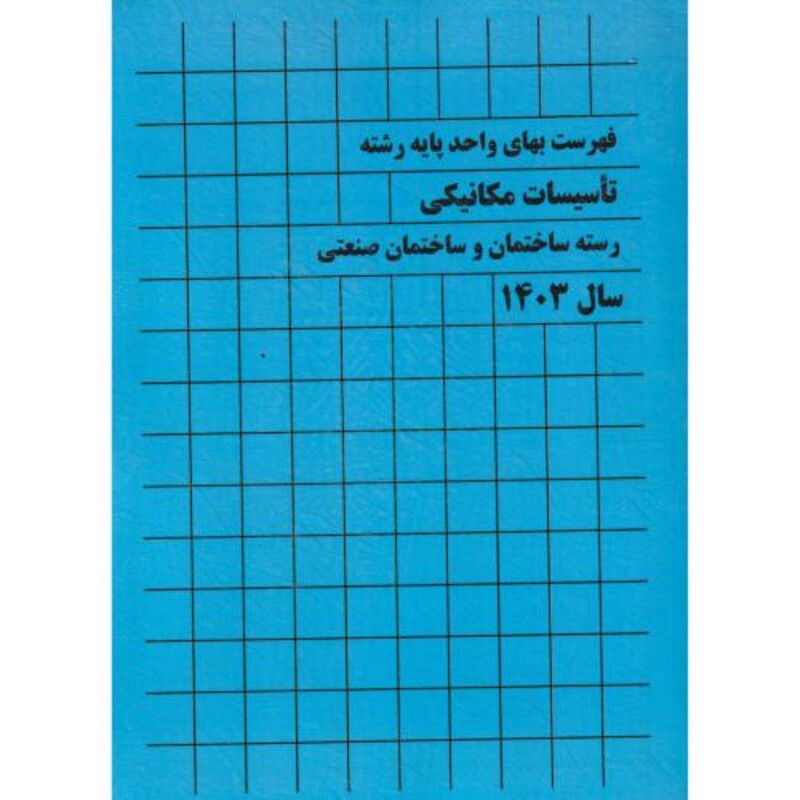 فهرست بهای واحد پایه رشته
تأسیسات مکانیکی
رسته ساختمان و ساختمان صنعتی
سال ۱۴۰۳